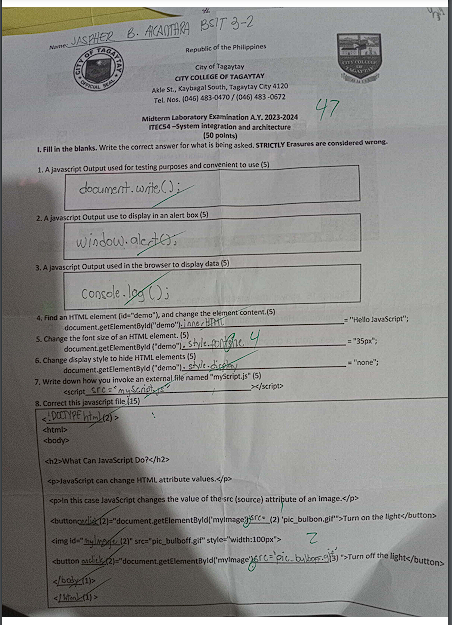 Name: JASPHER B. ALCANTARA BSIT 3-2
Republic of the Philippines
CITY OF TAGAYTAY
OFFICIAL SEAL
City of Tagaytay
CITY COLLEGE OF TAGAYTAY
Akle St., Kaybagal South, Tagaytay City 4120
Tel. Nos. (046) 483-0470 / (046) 483 -0672
47
Midterm Laboratory Examination A.Y. 2023-2024
ITEC54 –System integration and architecture
(50 points)
I. Fill in the blanks. Write the correct answer for what is being asked. STRICTLY Erasures are considered wrong.
1. A javascript Output used for testing purposes and convenient to use (5)
document.write();
2. A javascript Output use to display in an alert box (5)
window.alert();
3. A javascript Output used in the browser to display data (5)
console.log();
4. Find an HTML element (id="demo"), and change the element content.(5)
document.getElementById("demo").innerHTML = "Hello JavaScript";
5. Change the font size of an HTML element. (5) 4
document.getElementById ("demo"). style. = "35px";
6. Change display style to hide HTML elements (5)
document.getElementById ("demo"). style.display = "none";
7. Write down how you invoke an external file named "myScript.js" (5)
<script src="myScript.js" ></script>
8. Correct this javascript file (15)
<!DOCTYPE html(2) >
<html>
<body>
<h2>What Can JavaScript Do?</h2>
<p>JavaScript can change HTML attribute values.</p>
<p>In this case JavaScript changes the value of the src (source) attribute of an image.</p>
<button onclick(2)="document.getElementById('myImage').src= (2) 'pic_bulbon.gif'">Turn on the light</button>
<img id="myImage(2)" src="pic_bulboff.gif" style="width:100px"> 2
<button onclick(2)="document.getElementById('myImage').src='pic_bulboff.gif'(3) ">Turn off the light</button>
</body(1)>
</html(1) >